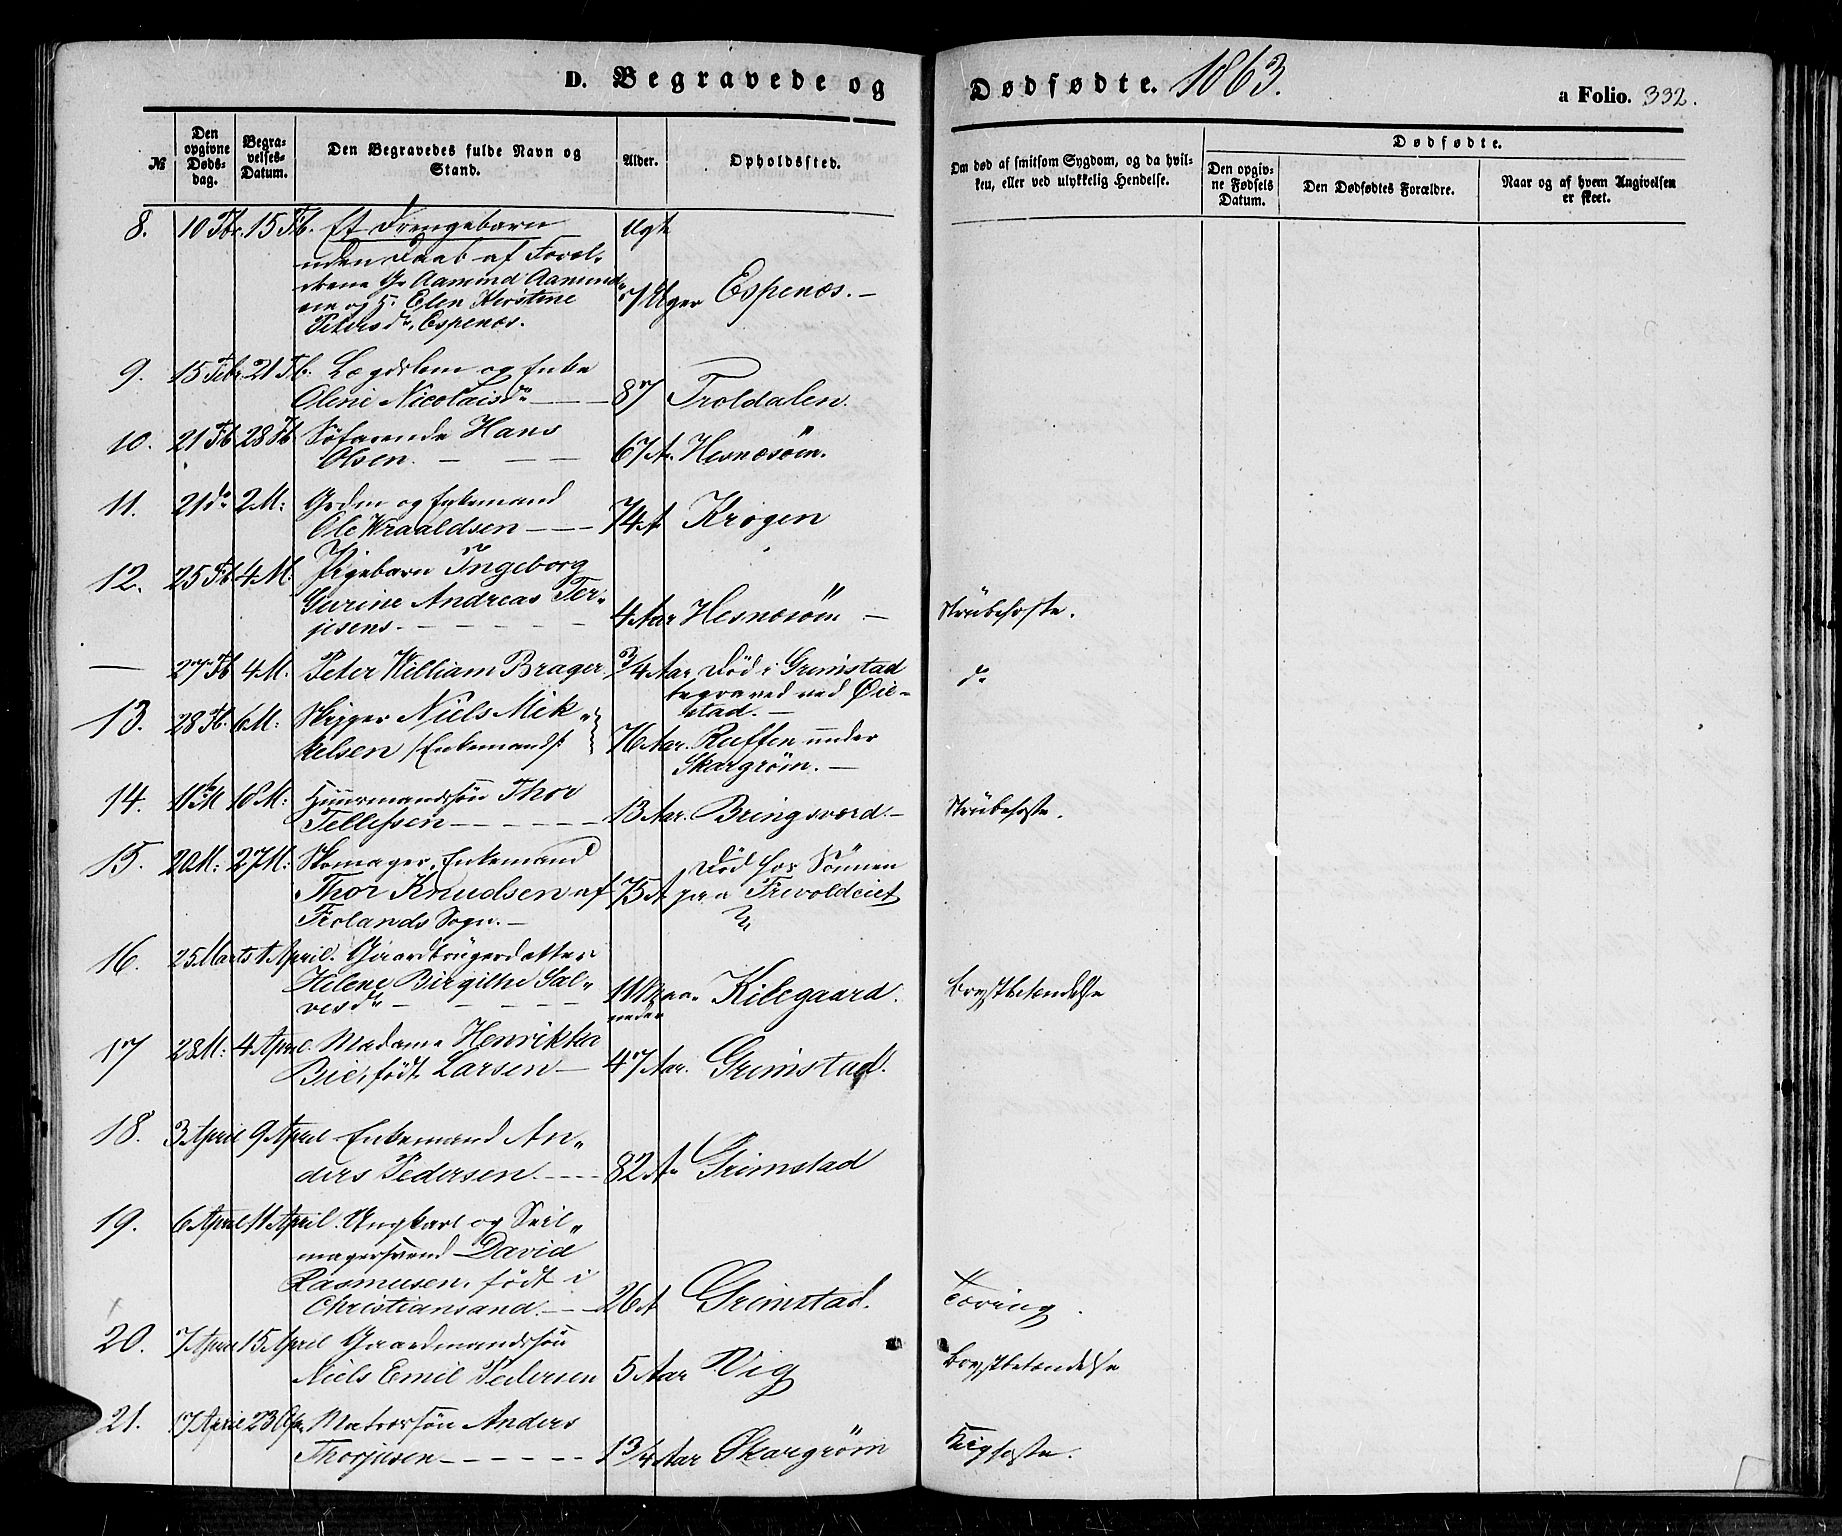 D. Begravede og Dødfødte. 1863.
a Folio. 332.
№
Den opgivne Døds-dag.
Begra-velses-Datum.
Den Begravedes fulde Navn og Stand.
Alder.
Opholdssted.
Om død af smitsom Sygdom, og da hvil-
ken, eller ved ulykkelig Hendelse.
Dødfødte.
Den opgiv-
ne Fødsels
Datum.
Den Dødfødtes Forældre.
Naar og af hvem Angivelsen
er skeet.
8. 10 Fbr. 15 Fb. Et Drengebarn Ægte
uden Daab af Foræl-
drene G. Aamund Aamund-
sen og H. Elen Kirstine 7 Uger Espenæs.
Petersdr, Espenæs.
9. 15 Febr. 21 Fb. Lægdslem og Enke
Oline Nicolaisdr 87 Troldalen.
10. 21 Fb 28 Fb Söfarende Hans
Olsen. 67 A. Hesnæsöen.
11. 21 do 2 M: Grdm og Enkemand
Ole Wraaldsen 74 A Krogen
12. 25 Fb 4 M. Pigebarn Ingeborg
Gurine Andreas Ter-
jesens. 4 Aar Hesnæsöen Strubehoste.
— 27 Fb 4 M. Peter William Brager 3/4 Aar Död i Grimstad do
begraved ved Øie-
stad.
13. 28 Fb. 6 M: Skipper Niels Mik-
kelsen /Enkemand/ 76 Aar. Ruffen under
Skargröm.
14. 11te M 18 M: Huusmandssön Thor
Tellefsen 13 Aar. Bringsværd. Strubehoste.
15. 20 M: 27 M: Skomager, Enkemand Död hos Sönnen
Thor Knudsen af 75 A paa Trevoldeiet
Frolands Sogn.
16. 25 Marts 1 April. Gaardbrugerdatter
Helene Birgithe Sal-
vesdr 11 Maa-neder Kilegaard. Brystbetændelse
17 28 M: 4 April. Madame Henrikka
Bie, födt Larsen 47 Aar. Grimstad.
18. 3 April 9 April Enkemand An-
ders Pedersen. 82 A. Grimstad
19. 6 April 11 April. Ungkarl og Seil-
magersvend David
Rasmusen, födt i
Christiansand. 26 A Grimstad. Tæring.
20. 7 April 15 April Gaardmandssön
Niels Emil Pedersen 5 Aar Vig Brystbetændelse
21. 17 April 23 Apr. Matrossön Anders
Thorjusen 1 3/4 Aar Skargröm Kighoste.